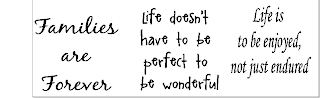 Families
are
Forever
Life doesn't
have to be
perfect to
be wonderful
Life is
to be enjoyed,
not just endured